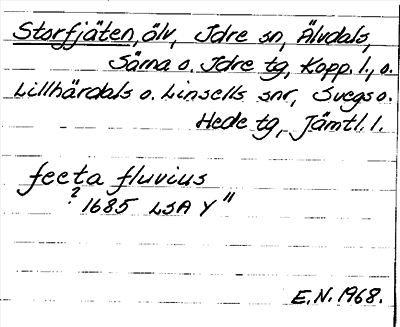 Storfjäten, älv, Idre sn, Älvdals,
Särna o. Idre tg, Kopp. l., o.
Lillhärdals o. Linsells snr, Svegs o.
Hede tg, Jämtl. l.
feeta fluvius
? 1685 LSA Y"
E.N. 1968.